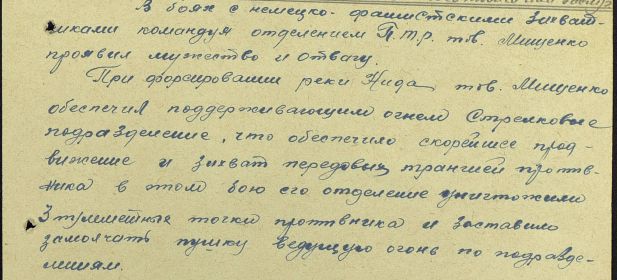 В боях с немецко-фашистскими захват-
чиками командуя отделением П.т.р. тов. Мищенко
проявил мужество и отвагу.
При форсировании реки Нида тов. Мищенко
обеспечил поддерживающим огнем Стрелковые
подразделение, что обеспечило скорейшее прод-
вижение и захват передовых траншей против-
ника в этом бою его отделение уничтожили
3 пулеметные точки протвника и заставило
замолчать пушку ведущую огонь по подразде-
лениям.